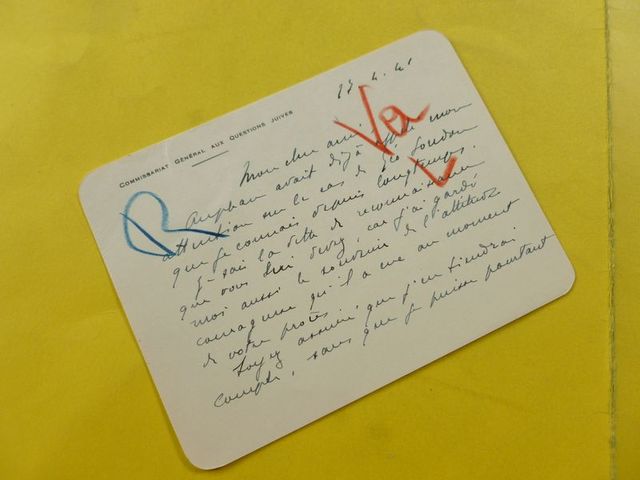 COMMISSARIAT GÉNÉRAL AUX QUESTIONS JUIVES
23.4.41
Va
Mon cher ami
R
Auphan avait déjà mon
attention sur le cas de Léo Goudon
que je connais depuis longtemps.
Je sais la dette de reconnaissance
que vous lui devez, car j'ai gardé
moi aussi le souvenir de l'attitude
courageuse qu'il a eue au moment
de votre procès.
Soyez assuré que j'en tiendrai
compte, sans que je puisse pourtant